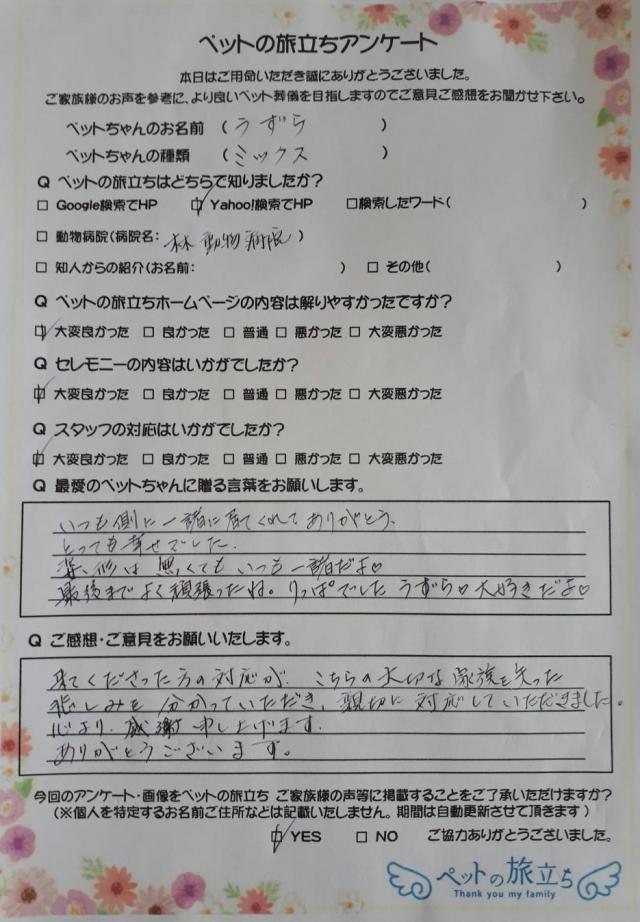 ペットの旅立ちアンケート
本日はご用命いただき誠にありがとうございました。
ご家族様のお声を参考に、より良いペット葬儀を目指しますのでご意見ご感想をお聞かせ下さい。
ペットちゃんのお名前 ( うずら )
ペットちゃんの種類 ( ミックス )
Q ペットの旅立ちはどちらで知りましたか?
□ Google検索でHP ☑ Yahoo!検索でHP □検索したワード( )
□ 動物病院(病院名: 森動物病院 )
□ 知人からの紹介(お名前: ) □ その他( )
Q ペットの旅立ちホームページの内容は解りやすかったですか?
☑ 大変良かった □ 良かった □ 普通 □ 悪かった □ 大変悪かった
Q セレモニーの内容はいかがでしたか?
☑ 大変良かった □ 良かった □ 普通 □ 悪かった □ 大変悪かった
Q スタッフの対応はいかがでしたか?
☑ 大変良かった □ 良かった □ 普通 □ 悪かった □ 大変悪かった
Q 最愛のペットちゃんに贈る言葉をお願いします。
いつも側に一諸に居てくれてありがとう、
とっても幸せでした。
姿、形は無くてもいつも一諸だよ♡
最後までよく頑張ったね。りっぱでした うずら♡大好きだよ♡
Q ご感想・ご意見をお願いいたします。
来てくださった方の対応が、こちらの大切な家族を失った
悲しみを分かっていただき、親切に対応していただきました。
心より、感謝申し上げます。
ありがとうございます。
今回のアンケート・画像をペットの旅立ち ご家族様の声等に掲載することをご了承いただけますか?
(※個人を特定するお名前ご住所などは記載いたしません。期間は自動更新させて頂きます)
☑ YES □ NO ご協力ありがとうございました。
ペットの旅立ち
Thank you my family